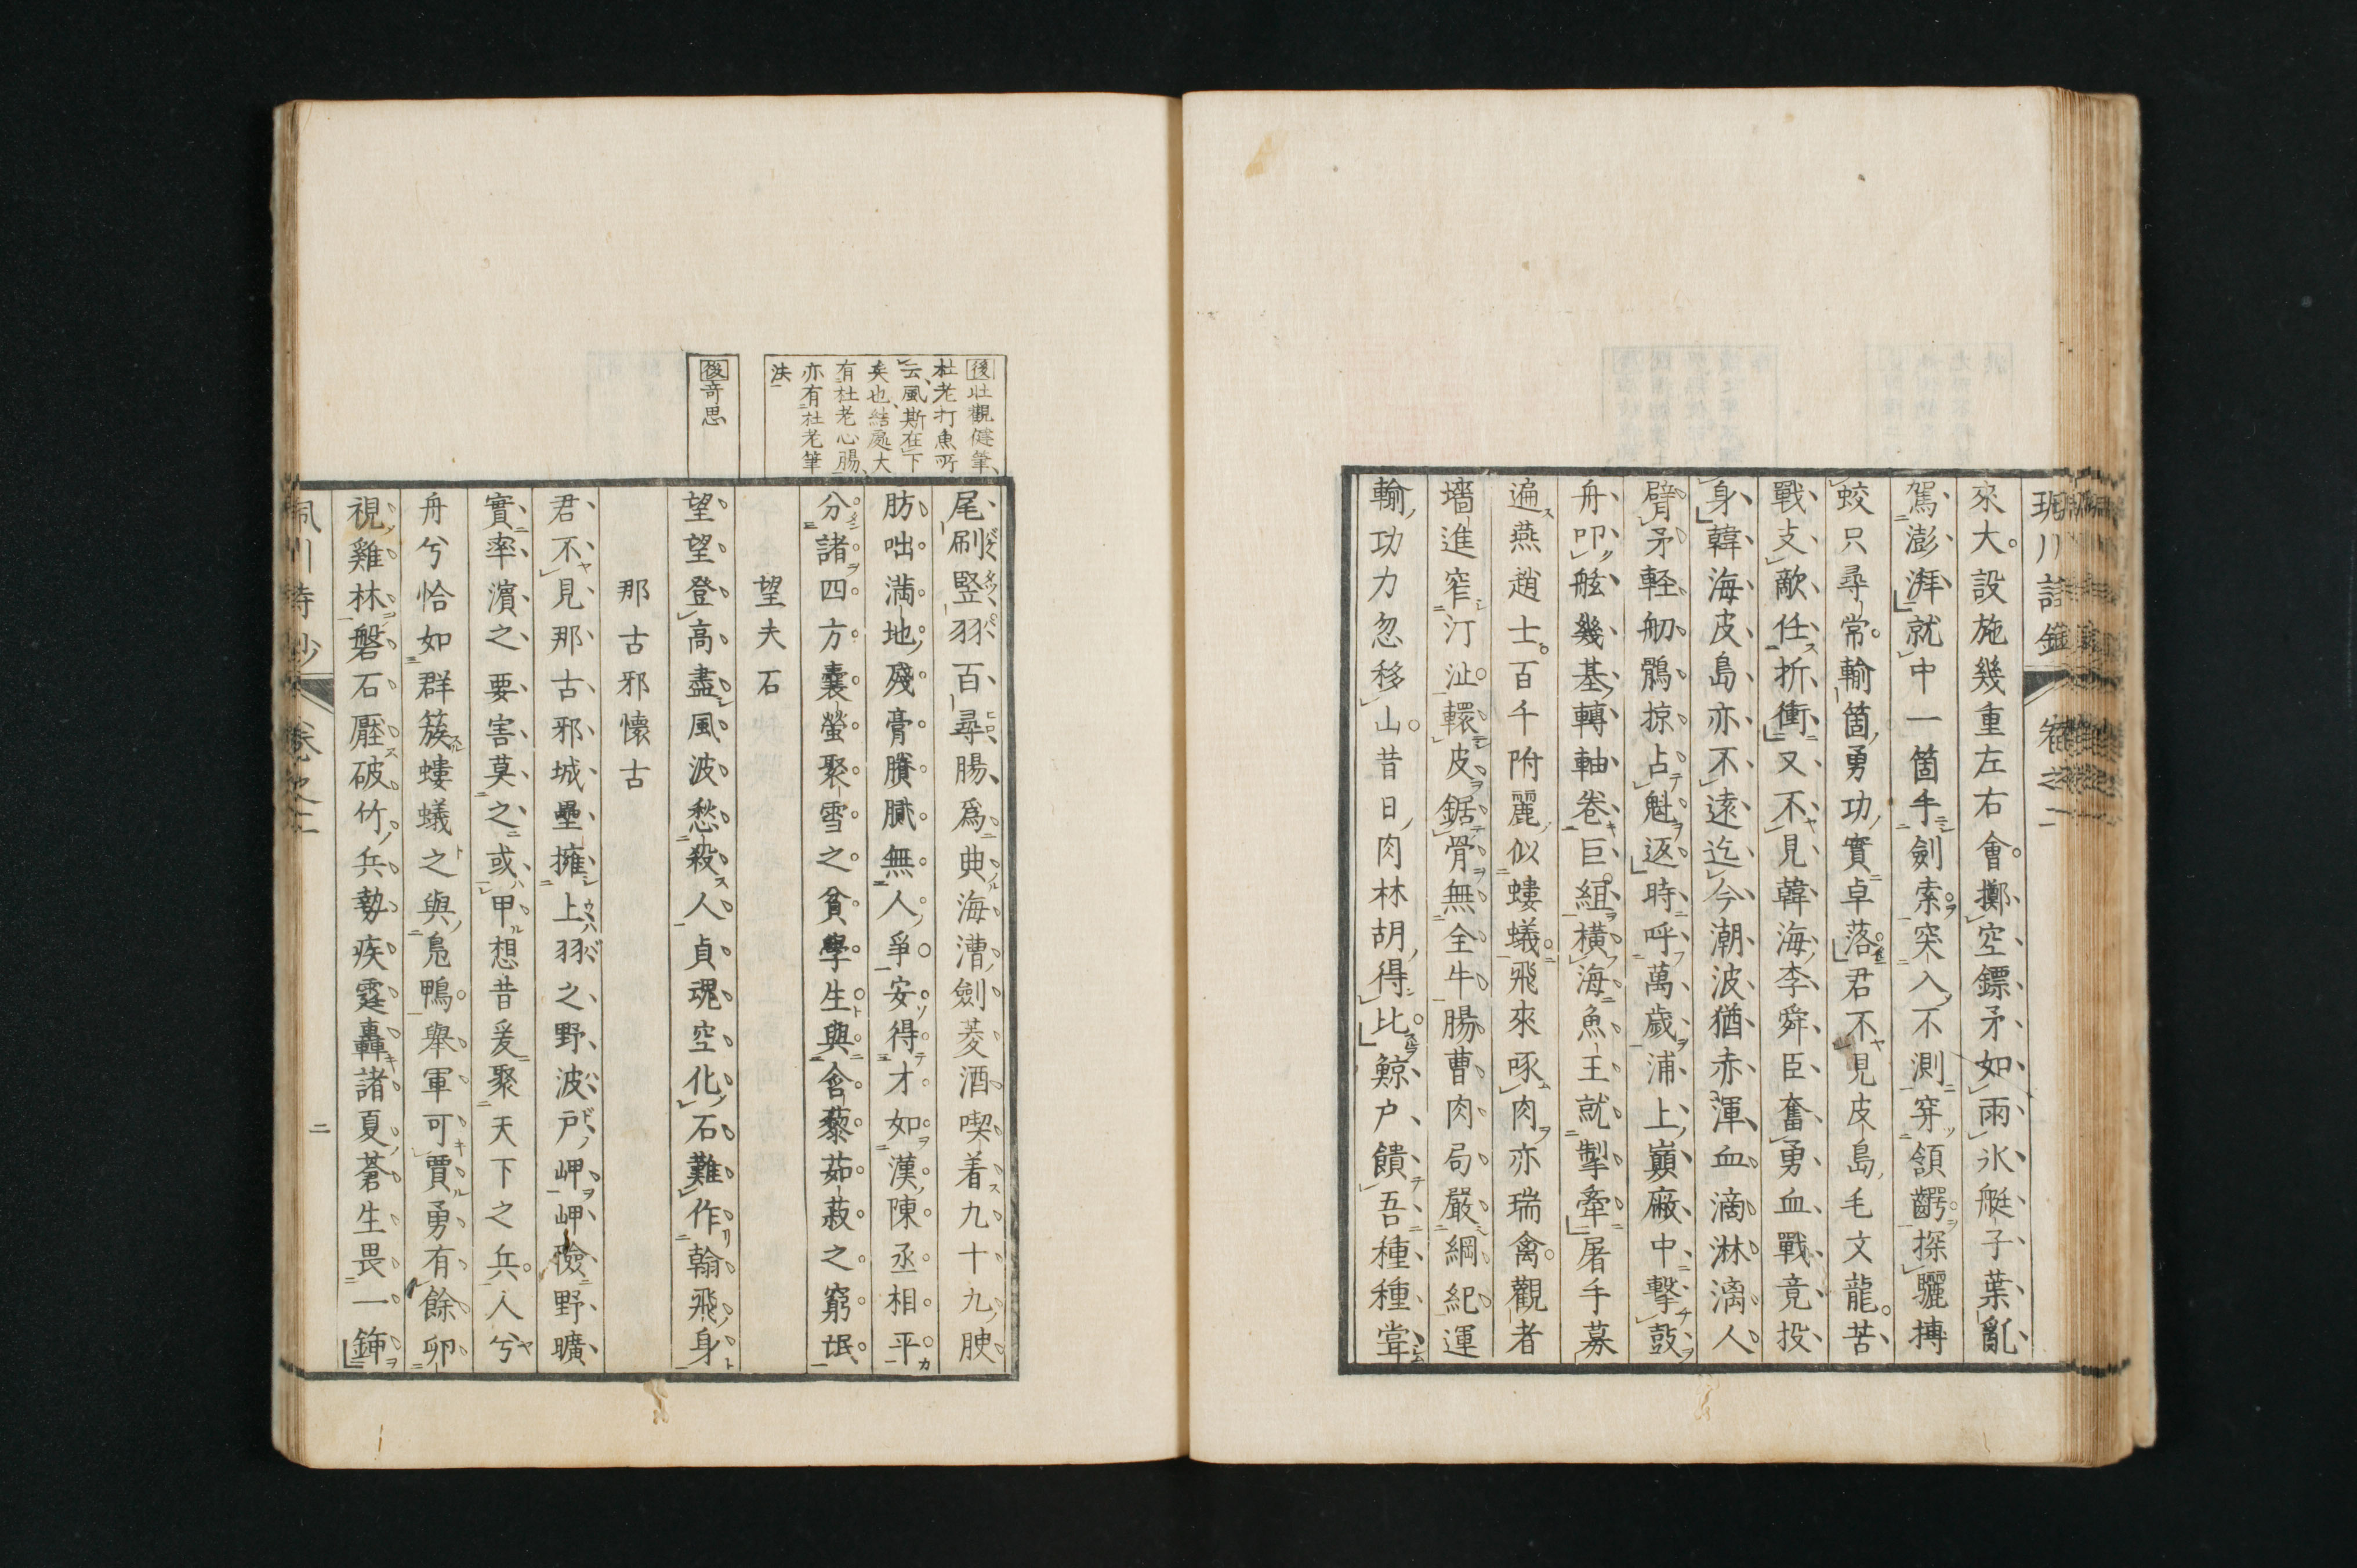 來大設施幾重左右會擲空鏢矛如雨氷艇子葉亂
駕澎湃就中一箇手劍索突入不測穿頷齶探驪摶
蛟只尋常輸箇勇功實卓落君不見皮島毛文龍苦
戰支敵任折衝又不見韓海李舜臣奮勇血戰竟投
身韓海皮島亦不遠迄今潮波猶赤渾血滴淋漓人
臂矛軽舠鶻掠占魁返時呼萬歲浦上巔廠中擊鼓
舟叩舷幾基轉軸卷巨組橫海魚王就掣牽屠手募
遍燕趙士百千附麗似螻蟻飛來啄肉亦瑞禽觀者
墻進窄汀沚轘皮鋸骨無全牛腸曹肉局嚴綱紀運
輸功力忽移山昔日肉林胡得比鯨戶饋吾種種嘗
後壯觀健筆
杜老打魚所
云風斯在下
矣也結處大
有杜老心腸
亦有杜老筆
法
後奇思
尾刷竪羽百尋腸爲典海漕劍菱酒喫着九十九腴
肪咄満地殘膏賸膩無人爭安得才如漢陳丞相平
分諸四方囊螢聚雪之貧學生與含藜茹菽之窮氓
望夫石
望望登高盡風波愁殺人貞魂空化石難作翰飛身
那古邪懷古
君不見那古邪城壘擁上羽之野波戸岬岬險野曠
實率濱之要害莫之或甲想昔爰聚天下之兵人兮
舟兮恰如群簇螻蟻之與鳧鴨舉軍可賈勇有餘卵
視雞林磐石壓破竹兵勢疾霆轟諸夏蒼生畏一錘
二